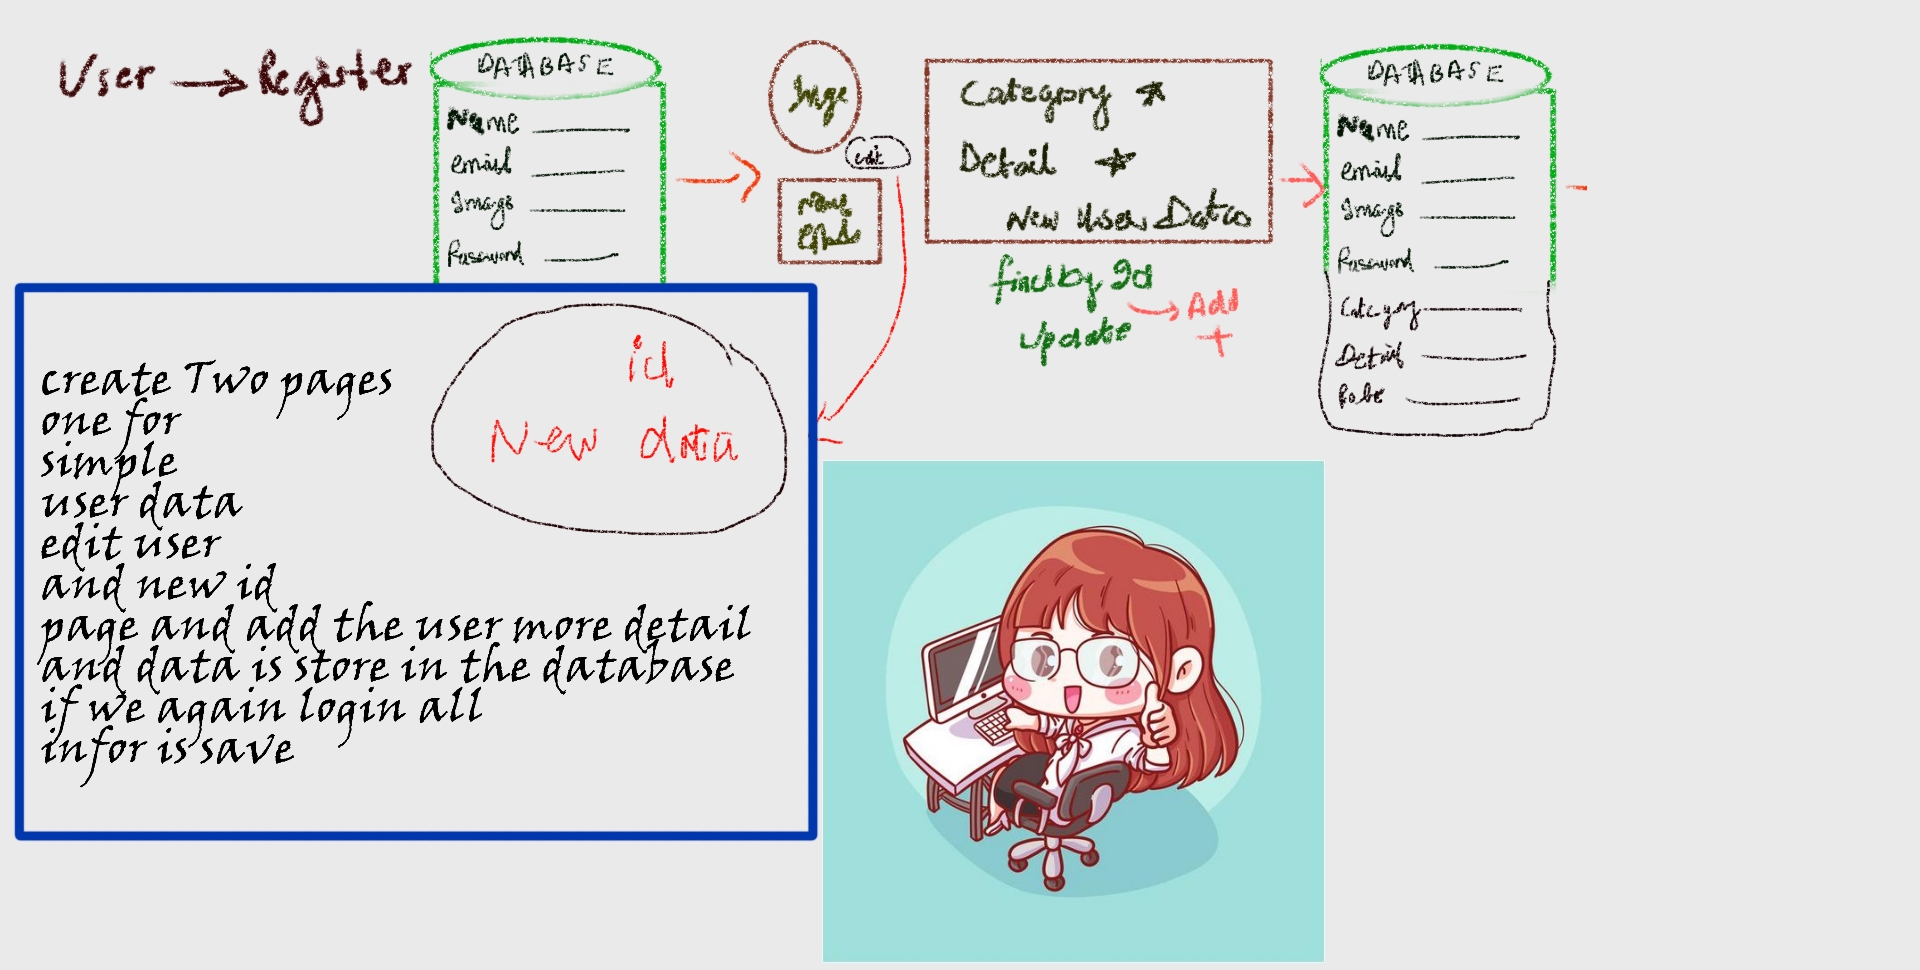 User → Register
DATABASE
Name
email
Image
Password
Image
edit
Name
Category
Detail
New User Data
findby Id
update
Add
+
DATABASE
Name
email
Image
Password
Category
Detail
id
New data
create Two pages
one for
simple
user data
edit user
and new id
page and add the user more detail
and data is store in the database
if we again login all
infor is save